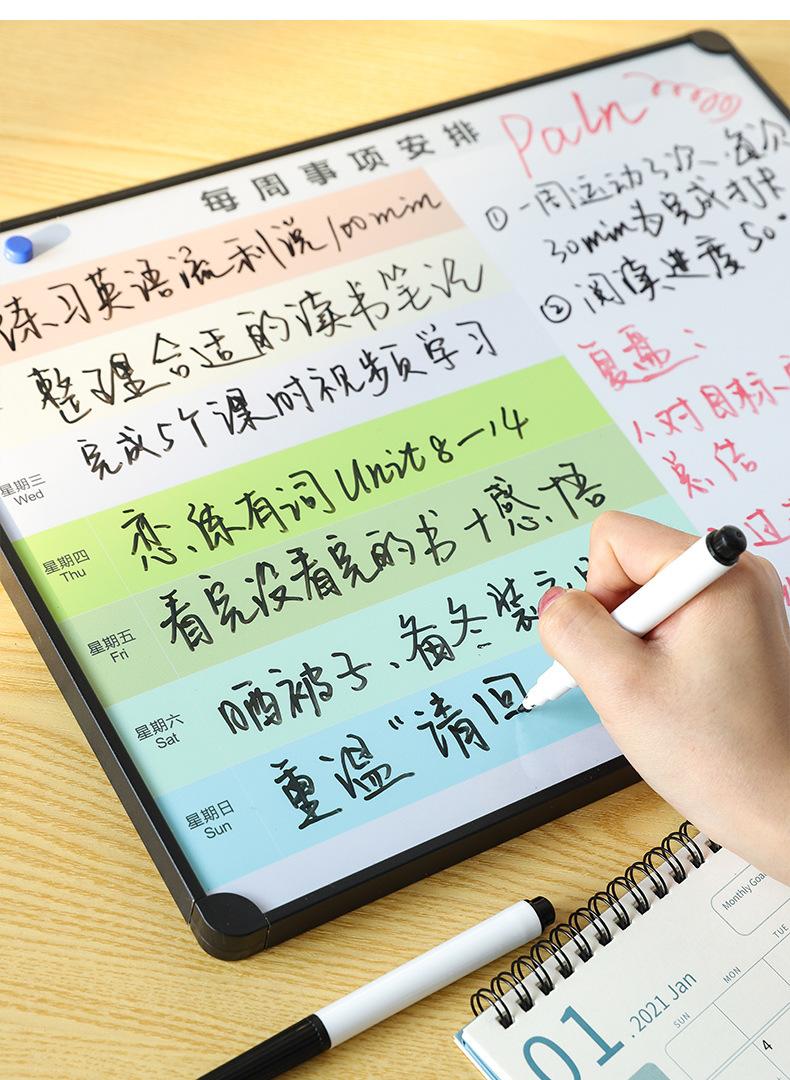 每周事项安排
练习英语流利说100min
整理合适的读书笔记
完成5个课时视频学习
星期三
Wed
恋、练有词 Unit 8—14
星期四
Thu
看完没看完的书+感悟
星期五
Fri
晒被子、备冬装
星期六
Sat
重温“请回
星期日
Sun
Paln
①一周运动3次、每次
30min为完成打卡
②阅读进度50
复盘:
1、对目标、
总结
过
01.2021 Jan
Monthly Goa
SUN
MON
TUE
4